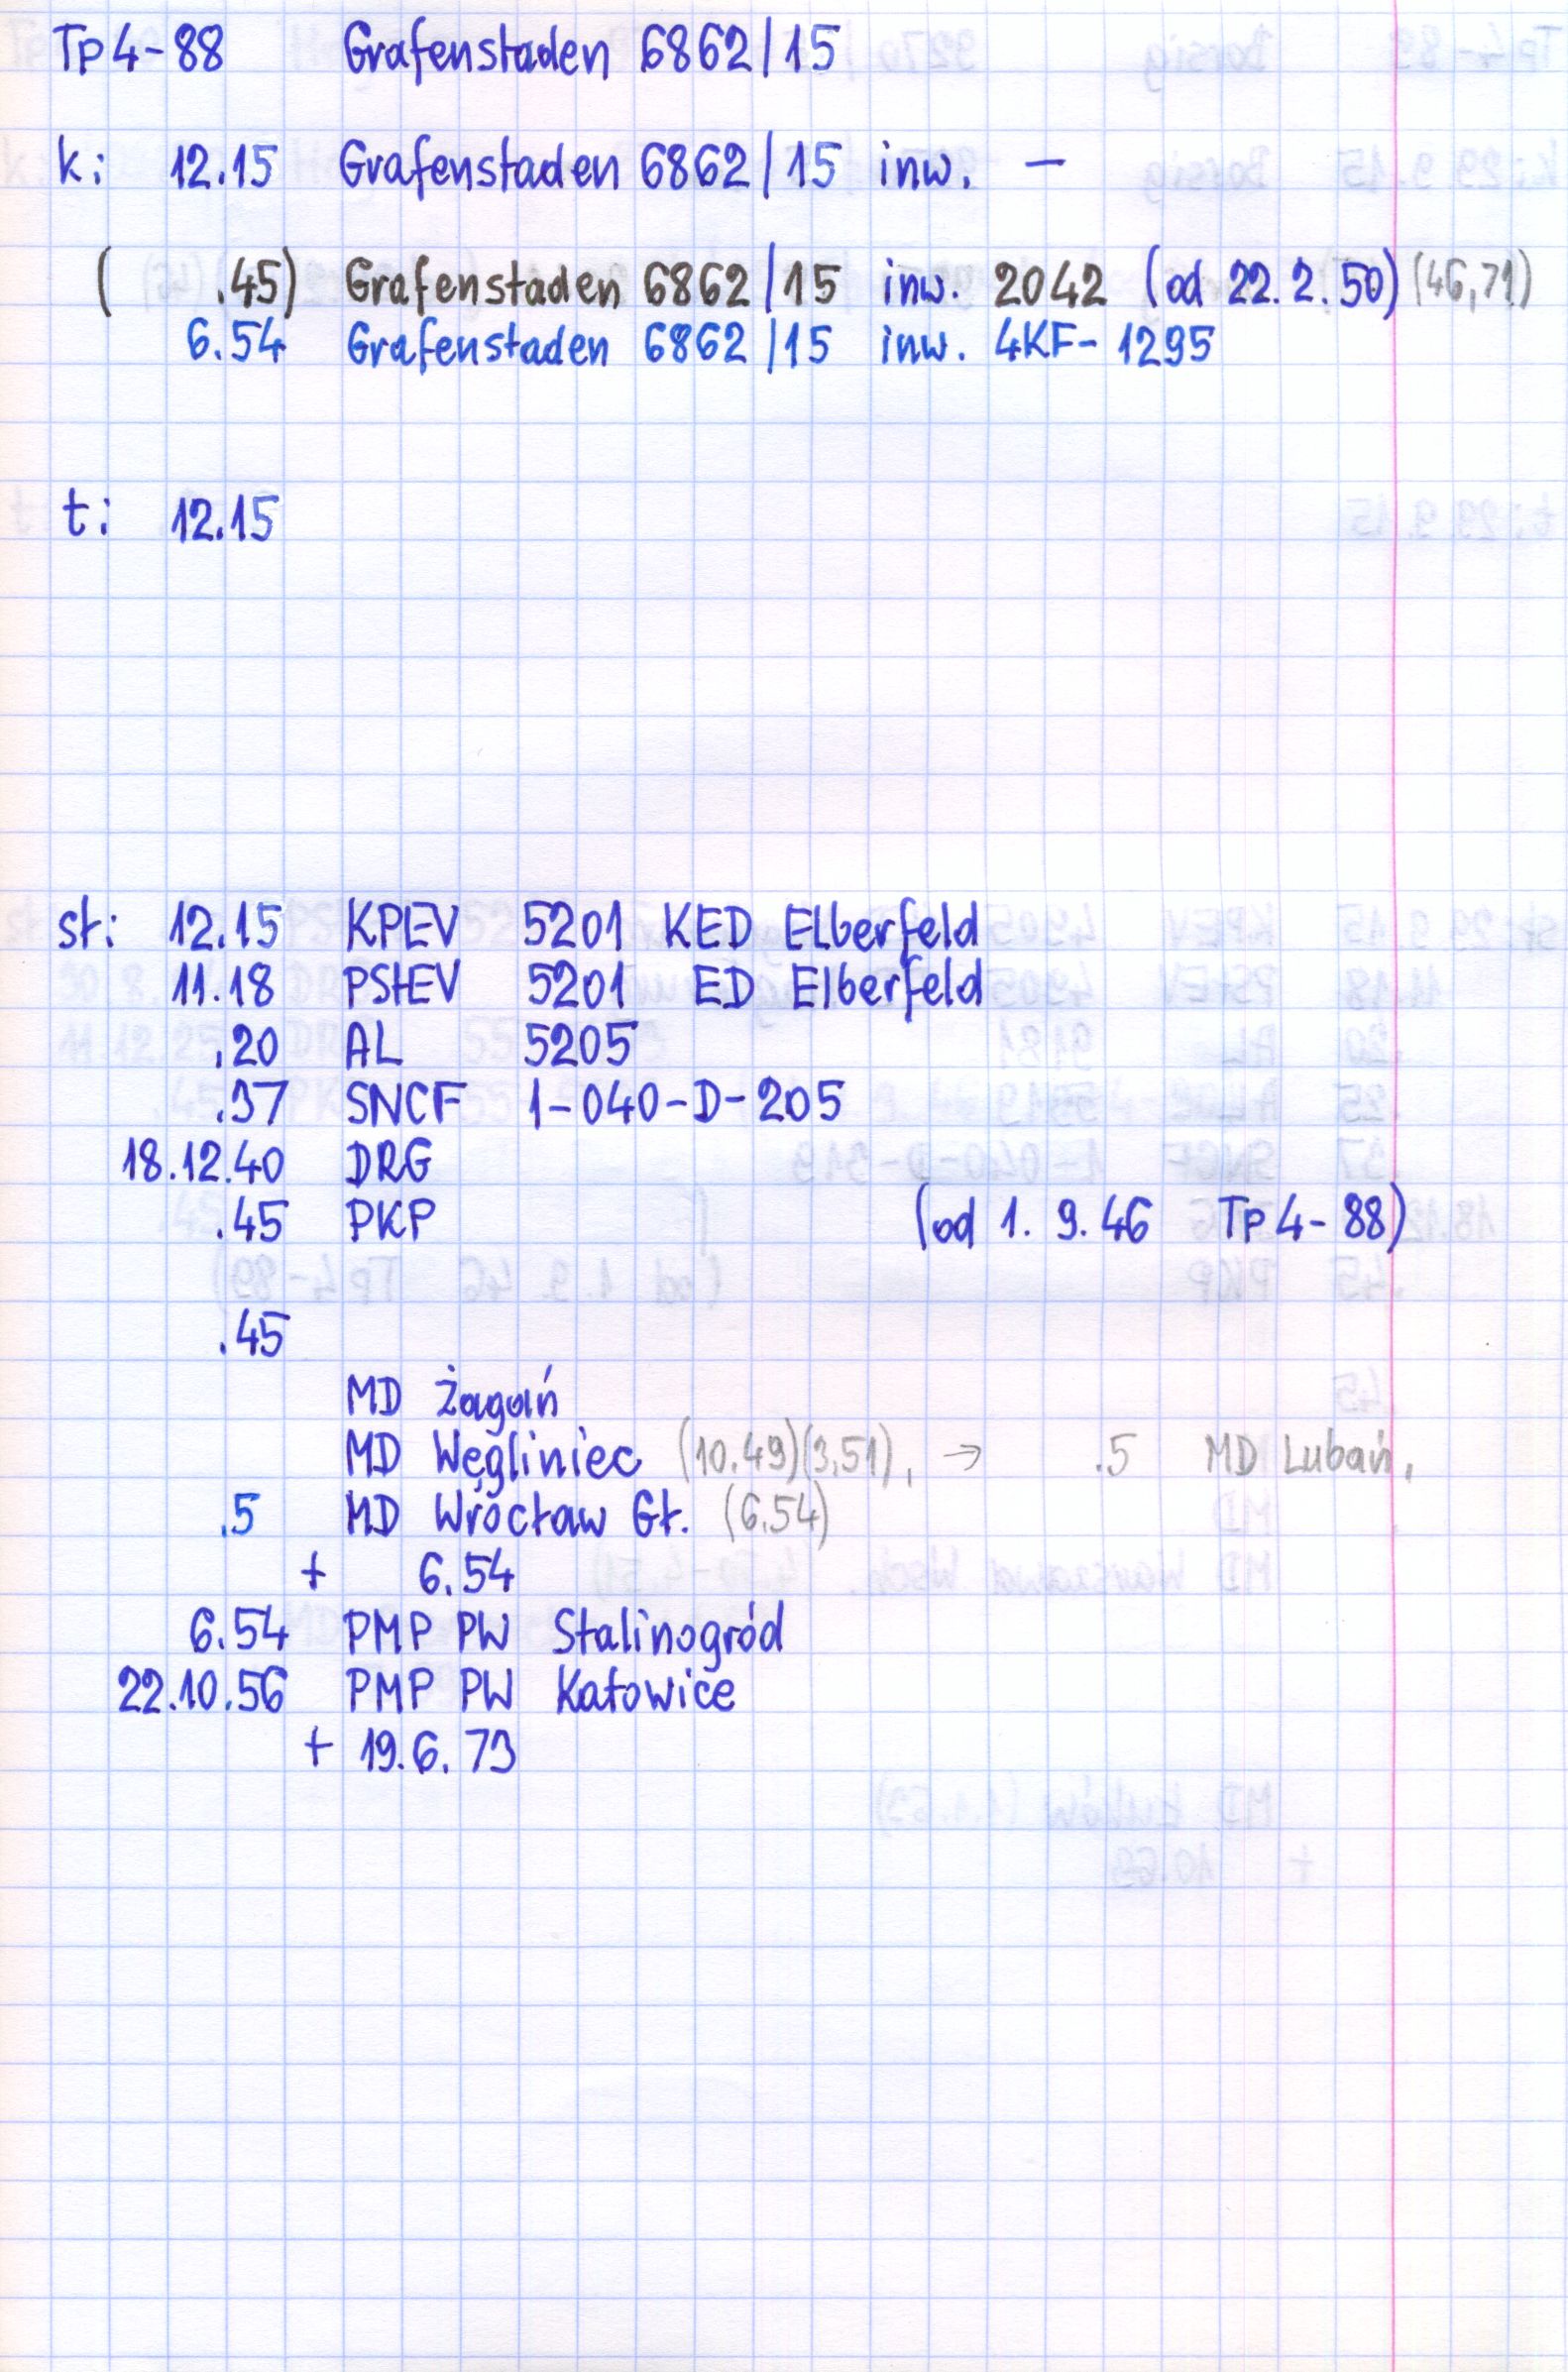 Tp4-88 Grafenstaden 6862/15
k: 12.15 Grafenstaden 6862/15 inw. —
( .45) Grafenstaden 6862/15 inw. 2042 (od 22.2.50) (46,71)
6.54 Grafenstaden 6862/15 inw. 4KF-1295
t: 12.15
st: 12.15 KPEV 5201 KED Elberfeld
11.18 PStEV 5201 ED Elberfeld
.20 AL 5205
.37 SNCF 1-040-D-205
18.12.40 DRG
.45 PKP (od 1.9.46 Tp4-88)
.45
MD Żagań
MD Węgliniec (10.49)(3,51), → .5 MD Lubań,
.5 MD Wrocław Gł. (6.54)
+ 6.54
6.54 PMP PW Stalinogród
22.10.56 PMP PW Katowice
+ 19.6.73